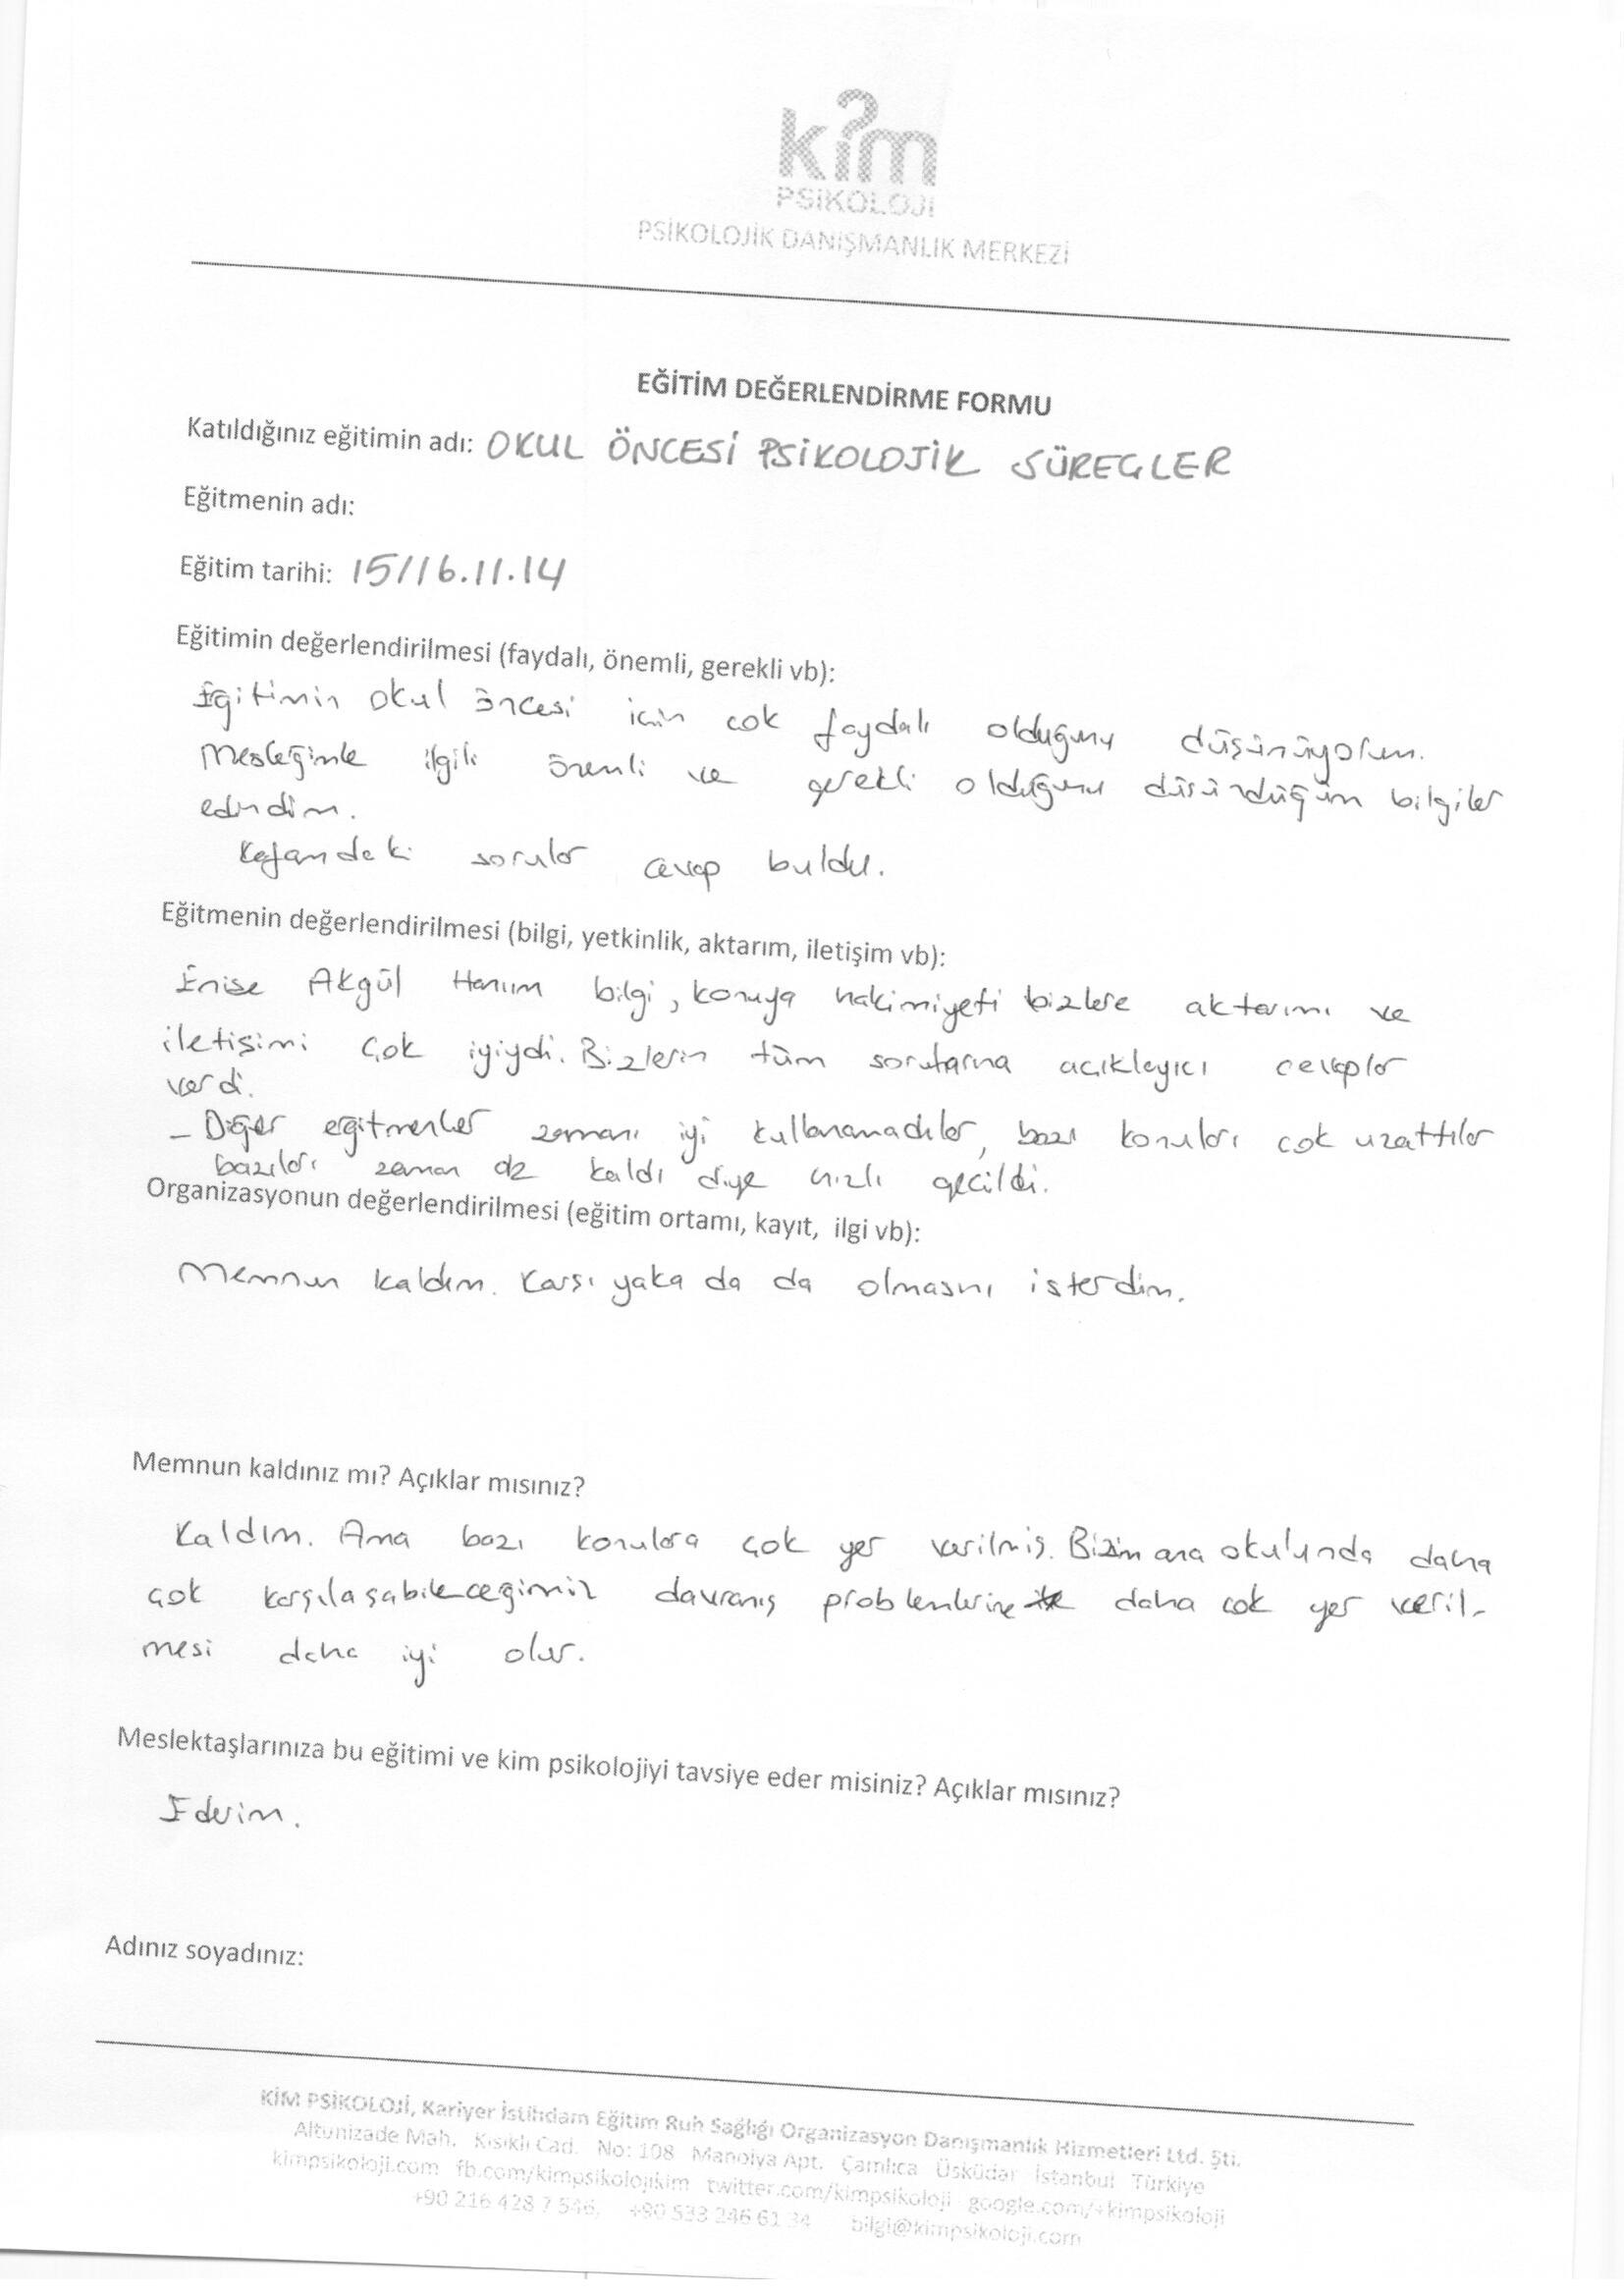 kim
PSİKOLOJİ
PSİKOLOJİK DANIŞMANLIK MERKEZİ
EĞİTİM DEĞERLENDİRME FORMU
Katıldığınız eğitimin adı: OKUL ÖNCESİ PSİKOLOJİK SÜREÇLER
Eğitmenin adı:
Eğitim tarihi: 15/16.11.14
Eğitimin değerlendirilmesi (faydalı, önemli, gerekli vb):
Eğitimin okul öncesi için çok faydalı olduğunu düşünüyorum.
Mesleğimle ilgili önemli ve gerekli olduğunu düşündüğüm bilgiler
edindim.
Kafamdaki sorular cevap buldu.
Eğitmenin değerlendirilmesi (bilgi, yetkinlik, aktarım, iletişim vb):
Enise Akgül Hanım bilgi, konuya hakimiyeti bizlere aktarımı ve
iletişimi çok iyiydi. Bizlerin tüm sorularına açıklayıcı cevaplar
verdi.
- Diğer eğitmenler zamanı iyi kullanamadılar, bazı konuları çok uzattılar
bazıları zaman az kaldı diye hızlı geçildi.
Organizasyonun değerlendirilmesi (eğitim ortamı, kayıt, ilgi vb):
Memnun kaldım. Karşı yaka da da olmasını isterdim.
Memnun kaldınız mı? Açıklar mısınız?
Kaldım. Ama bazı konulara çok yer verilmiş. Bizim ana okulunda daha
çok karşılaşabileceğimiz davranış problemlerine daha çok yer veril-
mesi daha iyi olur.
Meslektaşlarınıza bu eğitimi ve kim psikolojiyi tavsiye eder misiniz? Açıklar mısınız?
Ederim.
Adınız soyadınız:
KİM PSİKOLOJİ, Kariyer İstihdam Eğitim Ruh Sağlığı Organizasyon Danışmanlık Hizmetleri Ltd. Şti.
Altunizade Mah. Kısıklı Cad. No: 108 Manolya Apt. Çamlıca Üsküdar İstanbul Türkiye
kimpsikoloji.com fb.com/kimpsikolojikim twitter.com/kimpsikoloji google.com/+kimpsikoloji
+90 216 428 7 546, +90 533 246 61 34 bilgi@kimpsikoloji.com